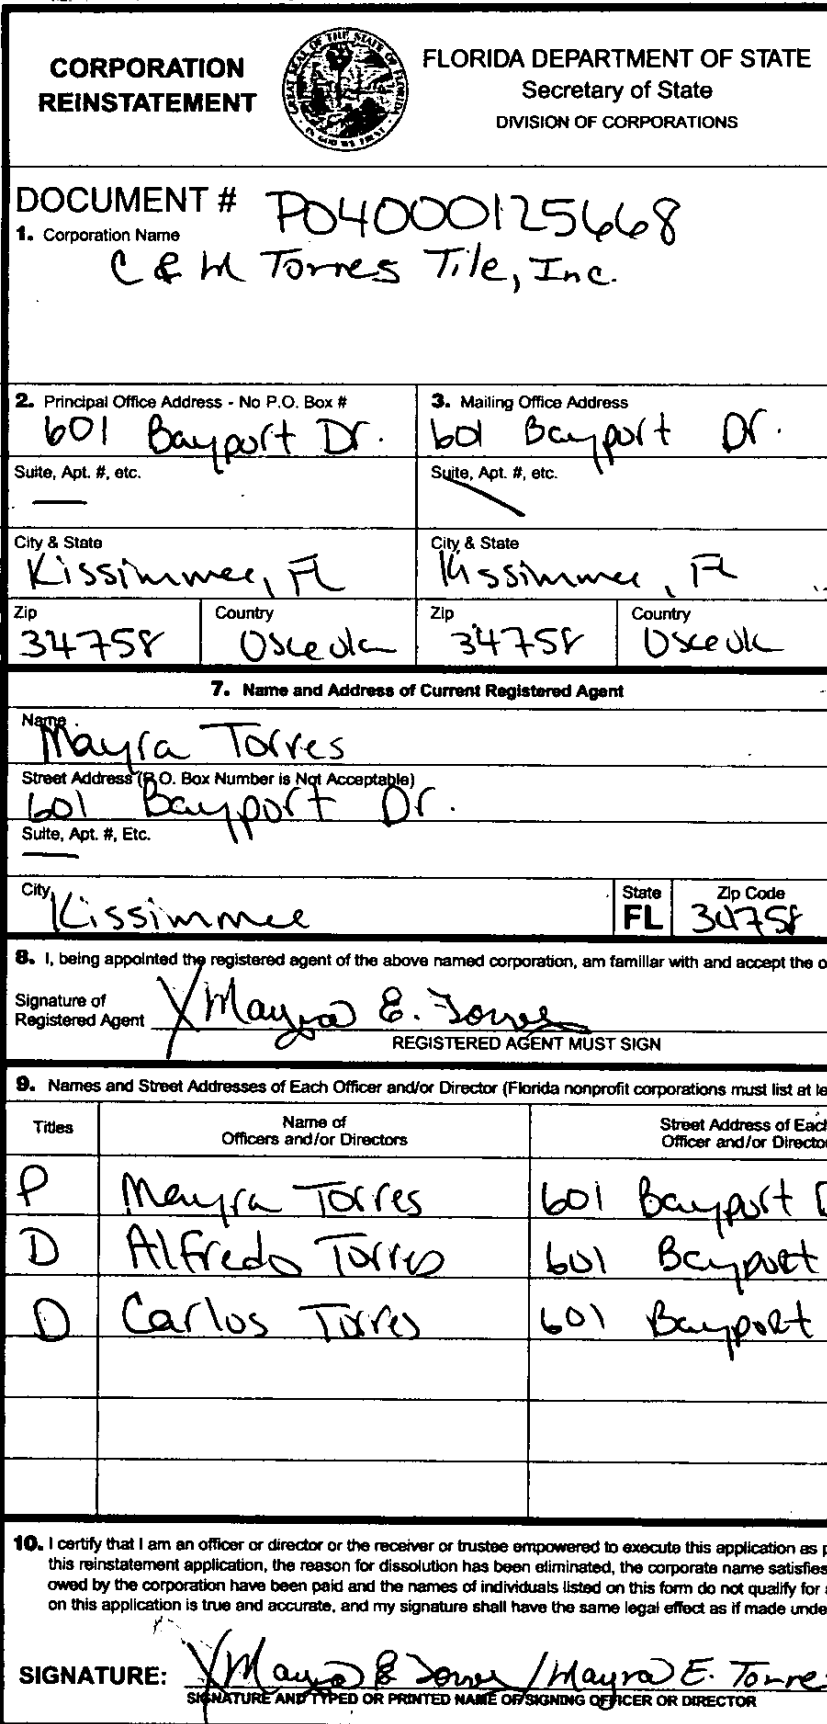 CORPORATION
REINSTATEMENT
FLORIDA DEPARTMENT OF STATE
Secretary of State
DIVISION OF CORPORATIONS
DOCUMENT # P04000125668
1. Corporation Name
C & M Torres Tile, Inc.
2. Principal Office Address - No P.O. Box # 3. Mailing Office Address
601 Bayport Dr. 601 Bayport Dr.
Suite, Apt. #, etc. Suite, Apt. #, etc.
City & State City & State
Kissimmee, FL Kissimmee, FL
Zip Country Zip Country
34758 Osceola 34758 Osceola
7. Name and Address of Current Registered Agent
Name
Mayra Torres
Street Address (P.O. Box Number is Not Acceptable)
601 Bayport Dr.
Suite, Apt. #, Etc.
City State Zip Code
Kissimmee FL 34758
8. I, being appointed the registered agent of the above named corporation, am familiar with and accept the o
Signature of
Registered Agent X Mayra E. Torres
REGISTERED AGENT MUST SIGN
9. Names and Street Addresses of Each Officer and/or Director (Florida nonprofit corporations must list at le
Titles Name of Officers and/or Directors Street Address of Each Officer and/or Director
P Mayra Torres 601 Bayport D
D Alfredo Torres 601 Bayport
D Carlos Torres 601 Bayport
10. I certify that I am an officer or director or the receiver or trustee empowered to execute this application as p
this reinstatement application, the reason for dissolution has been eliminated, the corporate name satisfies
owed by the corporation have been paid and the names of individuals listed on this form do not qualify for a
on this application is true and accurate, and my signature shall have the same legal effect as if made unde
SIGNATURE: X Mayra E Torres / Mayra E. Torre
SIGNATURE AND TYPED OR PRINTED NAME OF SIGNING OFFICER OR DIRECTOR